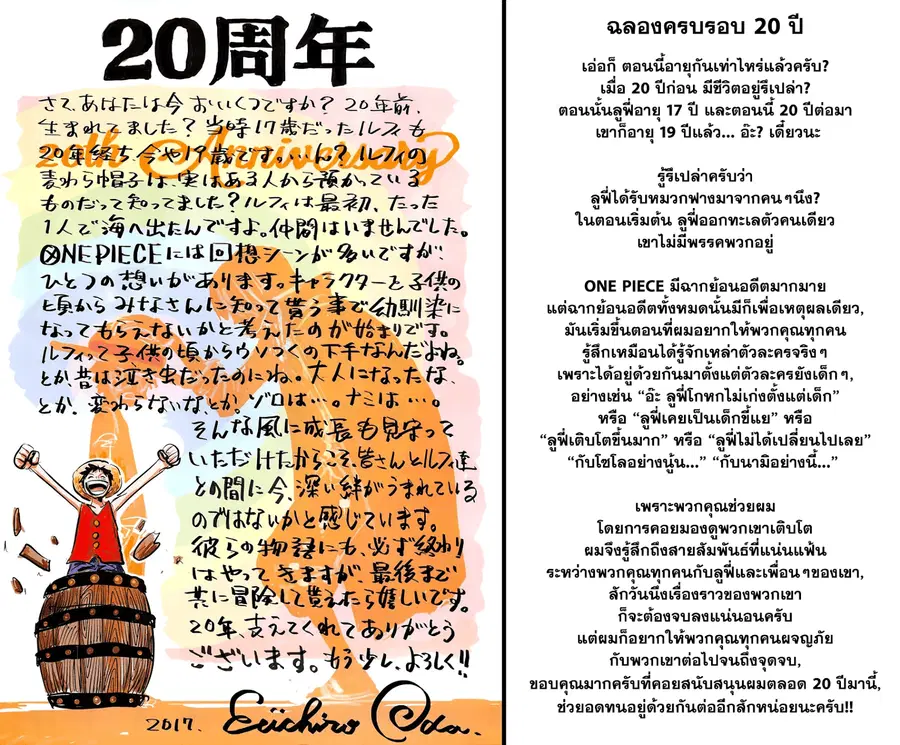 20周年
20th Anniversary
さて、あなたは今おいくつですか？20年前、
生まれてました？当時17歳だったルフィも
20年経ち今や19歳です。…いん？ルフィの
麦わら帽子は、実はある人から預かっている
ものだって知ってました？ルフィは最初、たった
1人で海へ出たんですよ。仲間はいませんでした。
ONE PIECEには回想シーンが多いですが、
ひとつの想いがあります。キャラクターを子供の
頃からみなさんに知って貰う事で幼馴染に
なってもらえないかと考えたのが始まりです。
ルフィって子供の頃からウソつくの下手なんだよね。
とか、昔は泣き虫だったのにね。大人になったな、
とか、変わらないな、とか。ゾロは…。ナミは…。
そんな風に成長も見守って
いただけたからこそ、皆さんとルフィ達
との間に今、深い絆がうまれている
のではないかと感じています。
彼らの物語にも、必ず終わり
はやってきますが、最後まで
共に冒険して貰えたら嬉しいです。
20年、支えてくれてありがとう
ございます。もう少し、よろしく!!
2017. Eiichiro Oda.
ฉลองครบรอบ 20 ปี
เอ่อก็ ตอนนี้อายุกันเท่าไหร่แล้วครับ?
เมื่อ 20 ปีก่อน มีชีวิตอยู่รึเปล่า?
ตอนนั้นลูฟี่อายุ 17 ปี และตอนนี้ 20 ปีต่อมา
เขาก็อายุ 19 ปีแล้ว... อ๊ะ? เดี๋ยวนะ
รู้รึเปล่าครับว่า
ลูฟี่ได้รับหมวกฟางมาจากคนๆนึง?
ในตอนเริ่มต้น ลูฟี่ออกทะเลตัวคนเดียว
เขาไม่มีพรรคพวกอยู่
ONE PIECE มีฉากย้อนอดีตมากมาย
แต่ฉากย้อนอดีตทั้งหมดนั้นมีก็เพื่อเหตุผลเดียว,
มันเริ่มขึ้นตอนที่ผมอยากให้พวกคุณทุกคน
รู้สึกเหมือนได้รู้จักเหล่าตัวละครจริงๆ
เพราะได้อยู่ด้วยกันมาตั้งแต่ตัวละครยังเด็กๆ,
อย่างเช่น “อ๊ะ ลูฟี่โกหกไม่เก่งตั้งแต่เด็ก”
หรือ “ลูฟี่เคยเป็นเด็กขี้แย” หรือ
“ลูฟี่เติบโตขึ้นมาก” หรือ “ลูฟี่ไม่ได้เปลี่ยนไปเลย”
“กับโซโลอย่างนู้น...” “กับนามิอย่างนี้...”
เพราะพวกคุณช่วยผม
โดยการคอยมองดูพวกเขาเติบโต
ผมจึงรู้สึกถึงสายสัมพันธ์ที่แน่นแฟ้น
ระหว่างพวกคุณทุกคนกับลูฟี่และเพื่อนๆของเขา,
สักวันนึงเรื่องราวของพวกเขา
ก็จะต้องจบลงแน่นอนครับ
แต่ผมก็อยากให้พวกคุณทุกคนผจญภัย
กับพวกเขาต่อไปจนถึงจุดจบ,
ขอบคุณมากครับที่คอยสนับสนุนผมตลอด 20 ปีมานี้,
ช่วยอดทนอยู่ด้วยกันต่ออีกสักหน่อยนะครับ!!